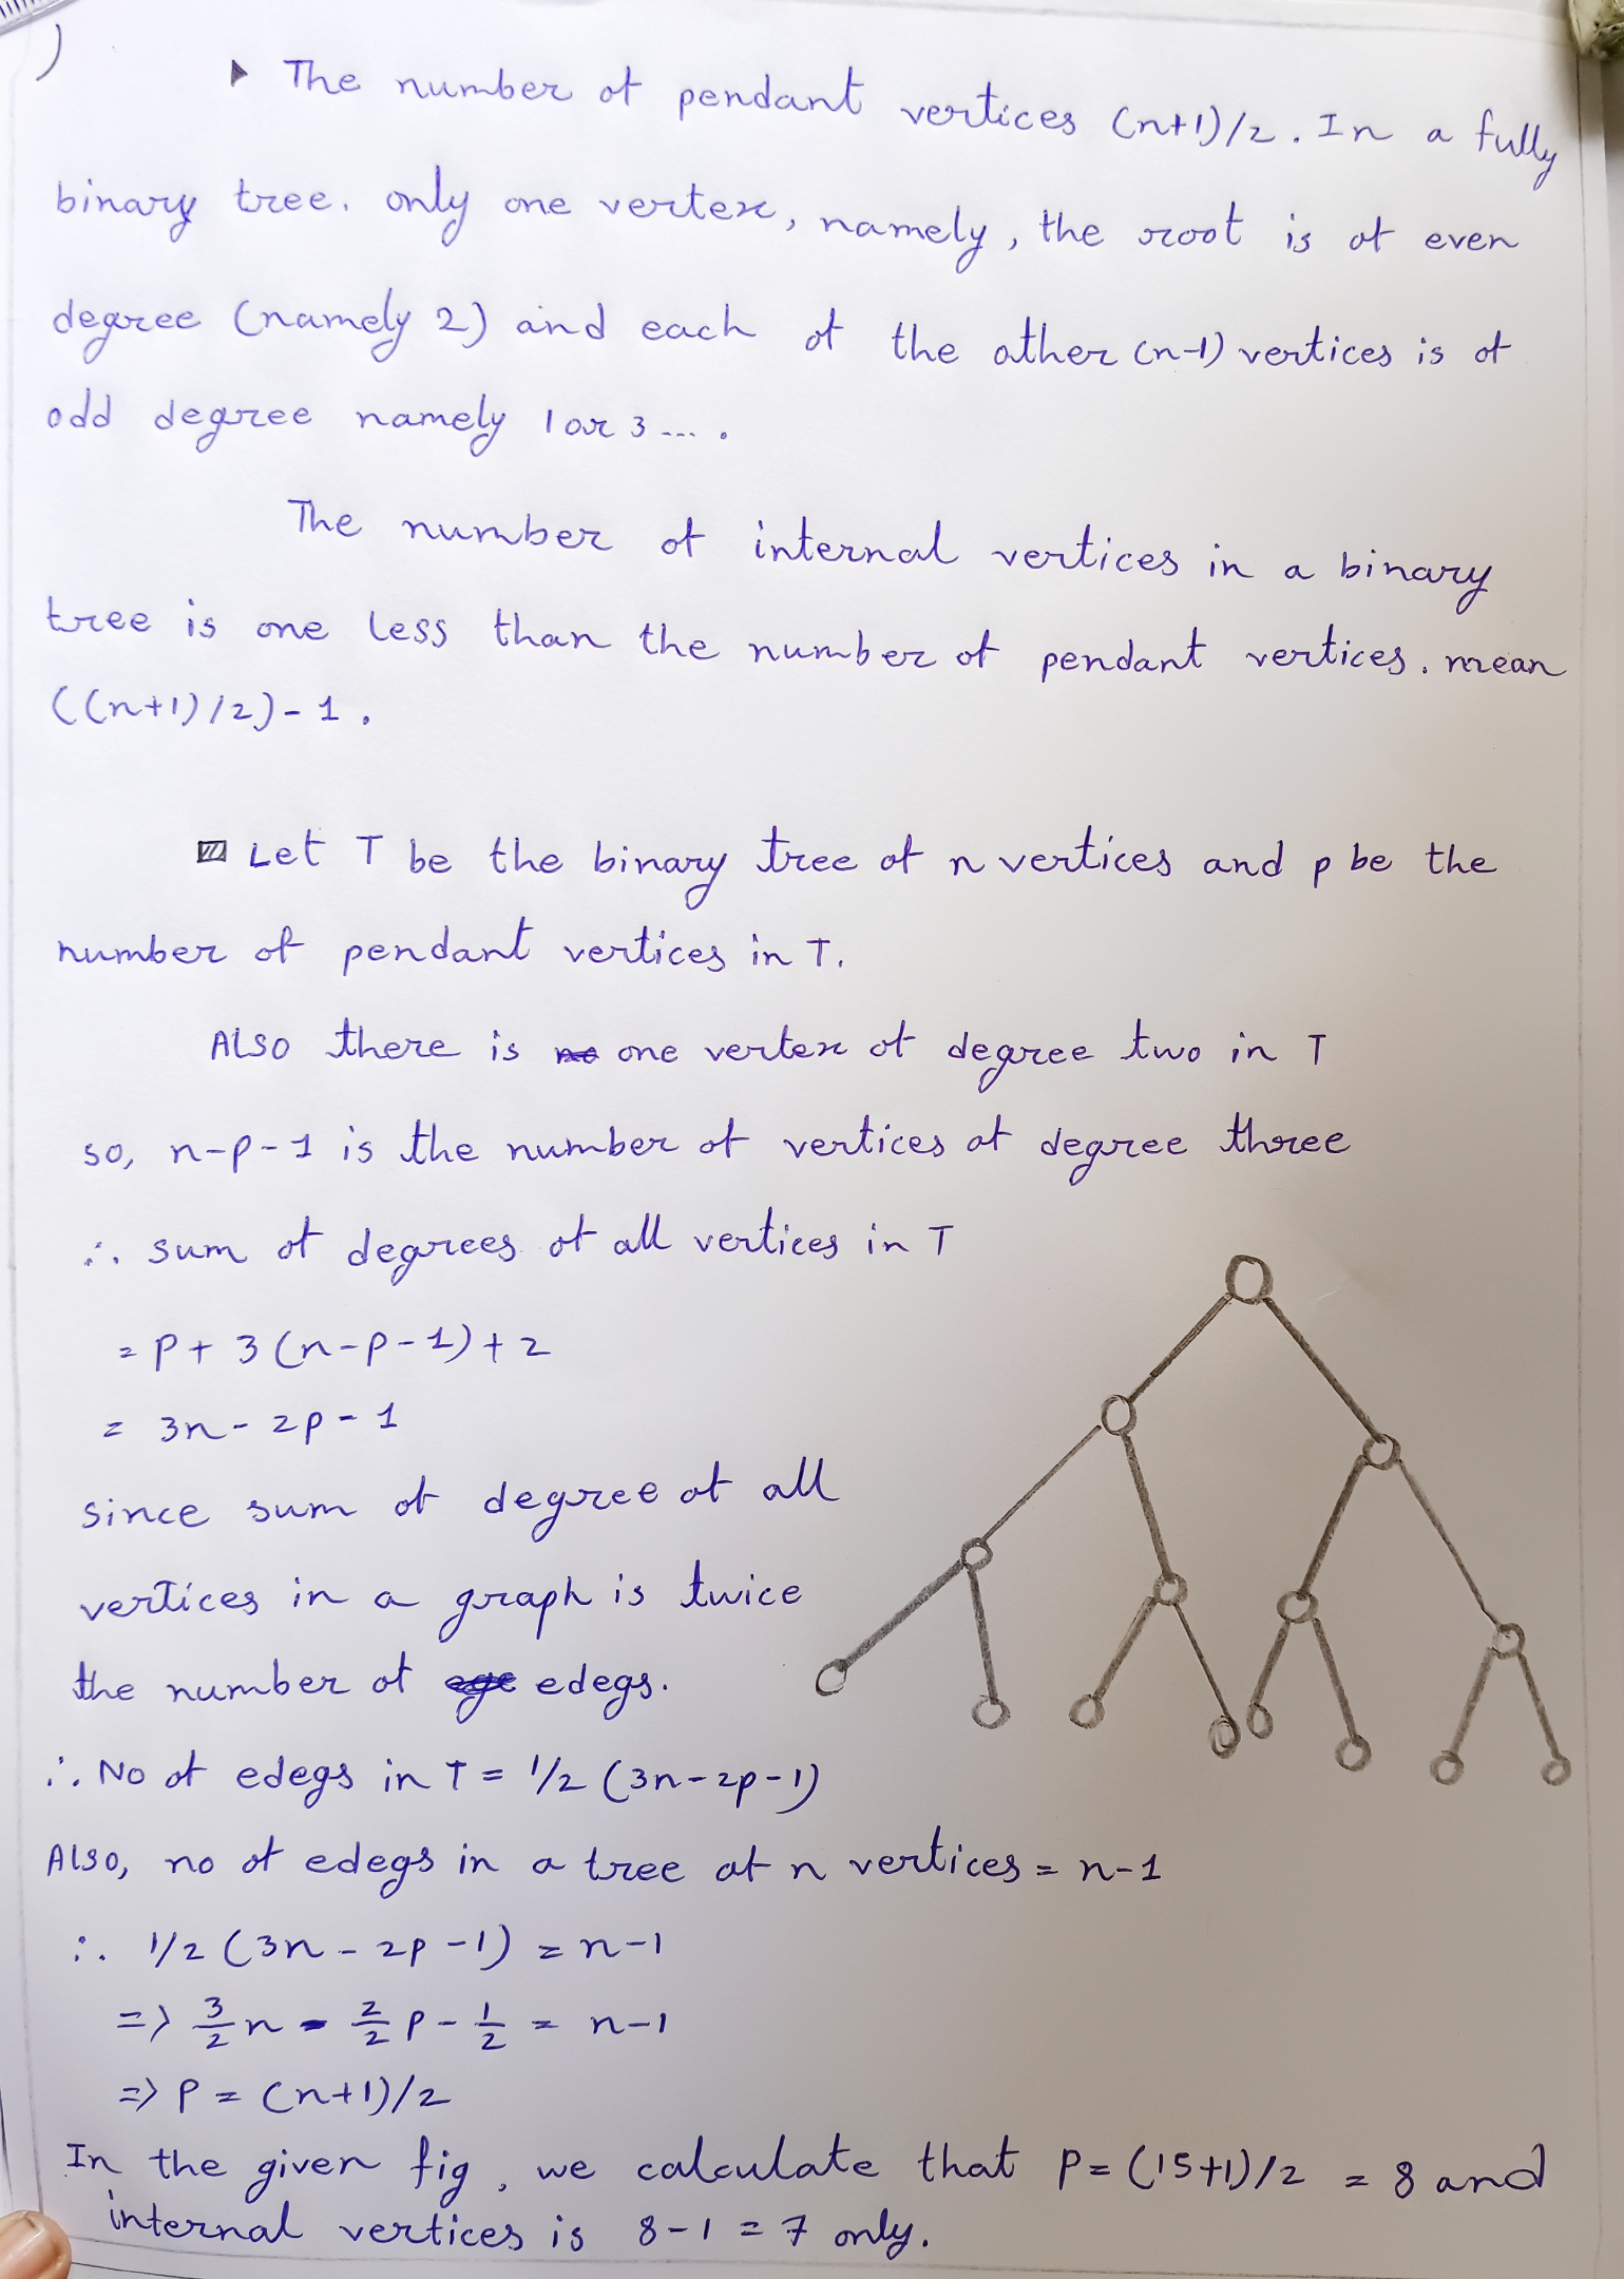 )
▶ The number of pendant vertices (n+1)/2. In a fully
binary tree. only one vertex, namely, the root is of even
degree (namely 2) and each of the other (n-1) vertices is of
odd degree namely 1 or 3 ... .
The number of internal vertices in a binary
tree is one less than the number of pendant vertices. mean
((n+1)/2)-1.
Let T be the binary tree of n vertices and p be the
number of pendant vertices in T.
Also there is no one vertex of degree two in T
so, n-p-1 is the number of vertices of degree three
∴ sum of degrees of all vertices in T
= p + 3(n-p-1)+2
= 3n - 2p - 1
since sum of degree of all
vertices in a graph is twice
the number of ege edegs.
∴ No of edegs in T = 1/2 (3n-2p-1)
Also, no of edegs in a tree of n vertices = n-1
∴ 1/2 (3n - 2p - 1) = n-1
=> 3/2 n - 2/2 p - 1/2 = n-1
=> P = (n+1)/2
In the given fig, we calculate that P = (15+1)/2 = 8 and
internal vertices is 8-1 = 7 only.